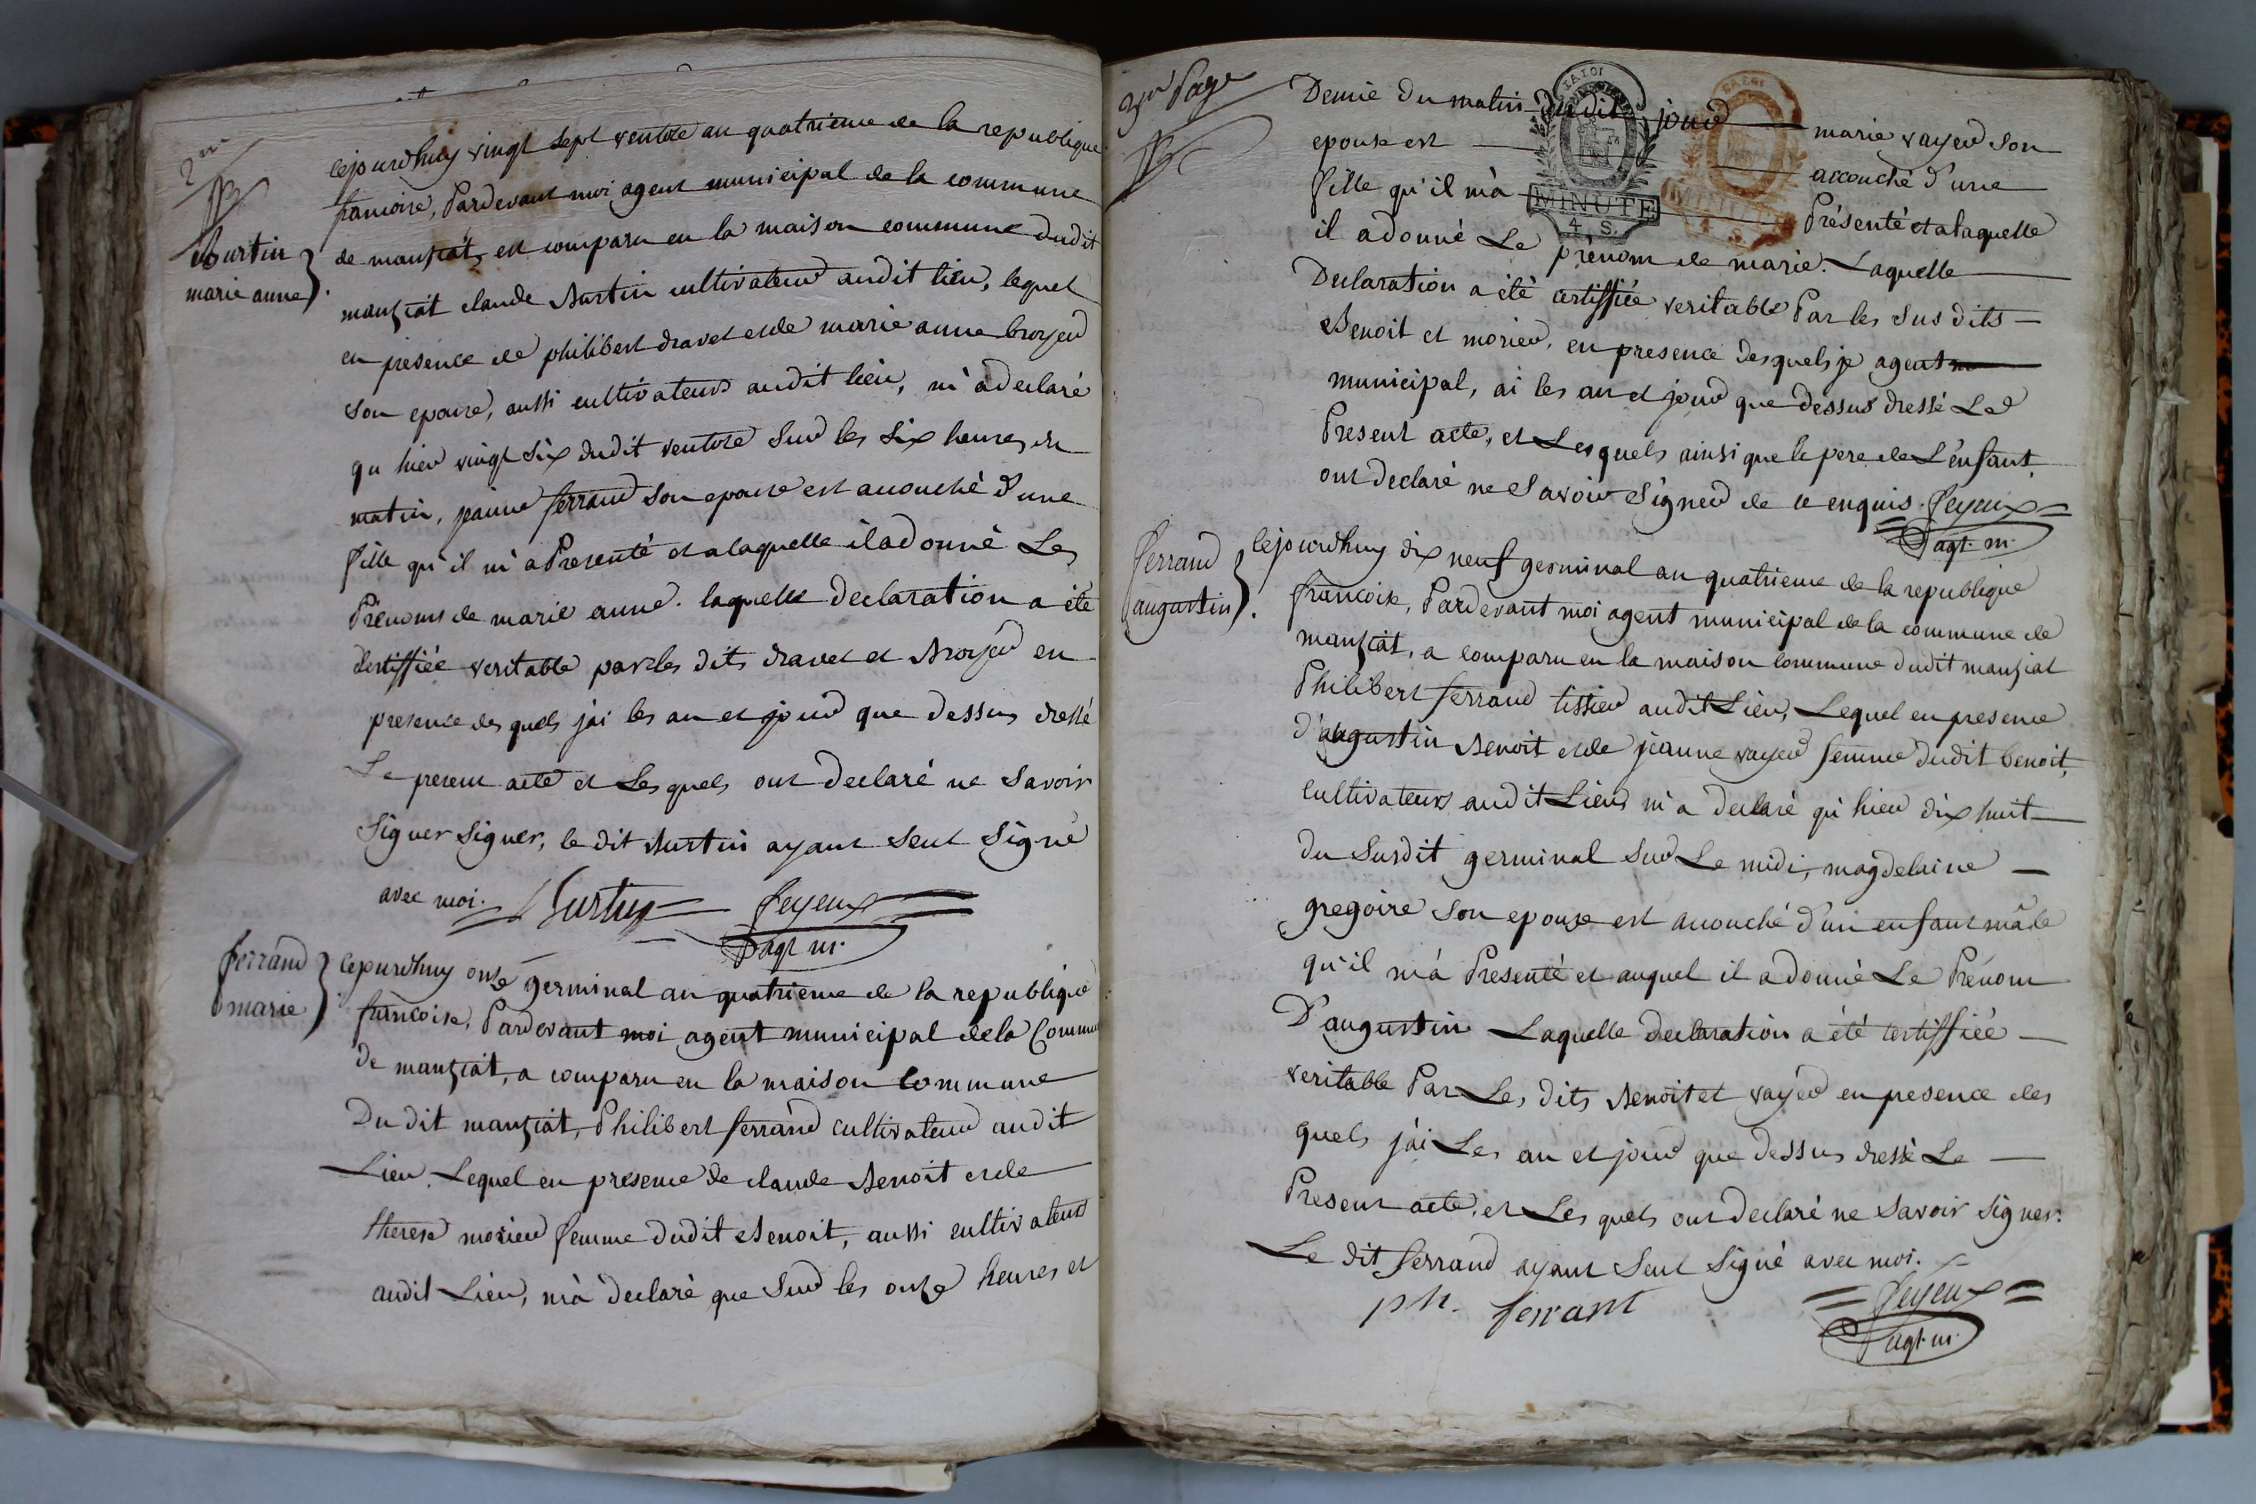 2me
Burtin
marie anne
cejourdhuy vingt sept ventose an quatrieme de la republique
francoise, Pardevant moi agent municipal de la commune
de manziat, est comparu en la maison commune dudit
manziat claude Burtin cultivateur audit lieu, lequel
en présence de philibert dravet et de marie anne broyer
son epouse, aussi cultivateurs audit lieu, m'a declaré
qu'hier vingt six dudit ventose sur les six heures du
matin, jeanne ferrand son epouse est accouché d'une
fille qu'il m'a Presenté et a laquelle il a donné Les
Prénoms de marie anne. laquelle declaration a été
certiffiée veritable par les dits dravet et Broyer en
presence des quels j'ai les an et jour que dessus dressé
Le present acte et Lesquels ont declaré ne Savoir
Signer Signer, le dit Burtin ayant Seul Signé
avec moi. Burtin feyeux
agt. m.
ferrand
marie
cejourdhuy onze germinal an quatrieme de la republique
francoise, Pardevant moi agent municipal de la Commune
de manziat, a comparu en la maison commune
Du dit manziat, Philibert ferrand cultivateur audit
Lieu, Lequel en presence de claude Benoit et de
therese morier femme dudit Benoit, aussi cultivateurs
audit Lieu, m'a declaré que Sur les onze heures et
3me Page
Demie du matin dudit jour marie vayer Son
epouse est accouché d'une
fille qu'il m'a Présenté et a laquelle
MINUTE
4. S.
il a donné Le prénom de marie. Laquelle
Declaration a été certiffiée veritable Par les Susdits
Benoit et morier, en presence desquels je agent
municipal, ai les an et jour que dessus dressé Le
Present acte, et Lesquels ainsi que le pere de L'enfant
ont declaré ne Savoir Signer de ce enquis. feyeux
agt. m.
ferrand
augustin
cejourdhuy dix neuf germinal an quatrieme de la republique
francoise, Pardevant moi agent municipal de la commune de
manziat, a comparu en la maison commune dudit manziat
Philibert ferrand tissier audit Lieu, Lequel en presence
d'augustin Benoit et de jeanne vayer femme dudit benoit,
cultivateurs audit Lieu m'a declaré qu'hier dix huit
du Susdit germinal Sur Le midi, magdelaine
gregoire Son epouse est accouché d'un enfant mâle
qu'il m'a Presenté et auquel il a donné Le Prénom
D'augustin Laquelle declaration a été certiffiée
veritable Par Les dits Benoit et vayer en presence des
quels j'ai Les an et jour que dessus dressé Le
Present acte, et Les quels ont declaré ne Savoir Signer.
Le dit ferrand ayant Seul Signé avec moi.
ph. ferrant feyeux
agt. m.